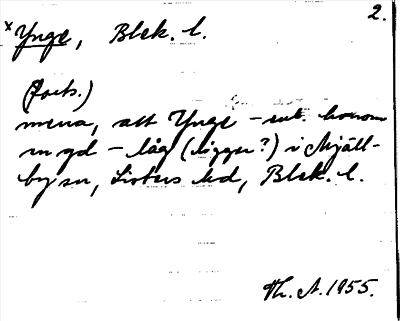 2.
x Ynge, Blek. l.
(forts.)
mena, att Ynge – enl. honom
en gd – låg (ligger?) i Mjäll-
by sn, Listers hd, Blek. l.
Th. A. 1955.